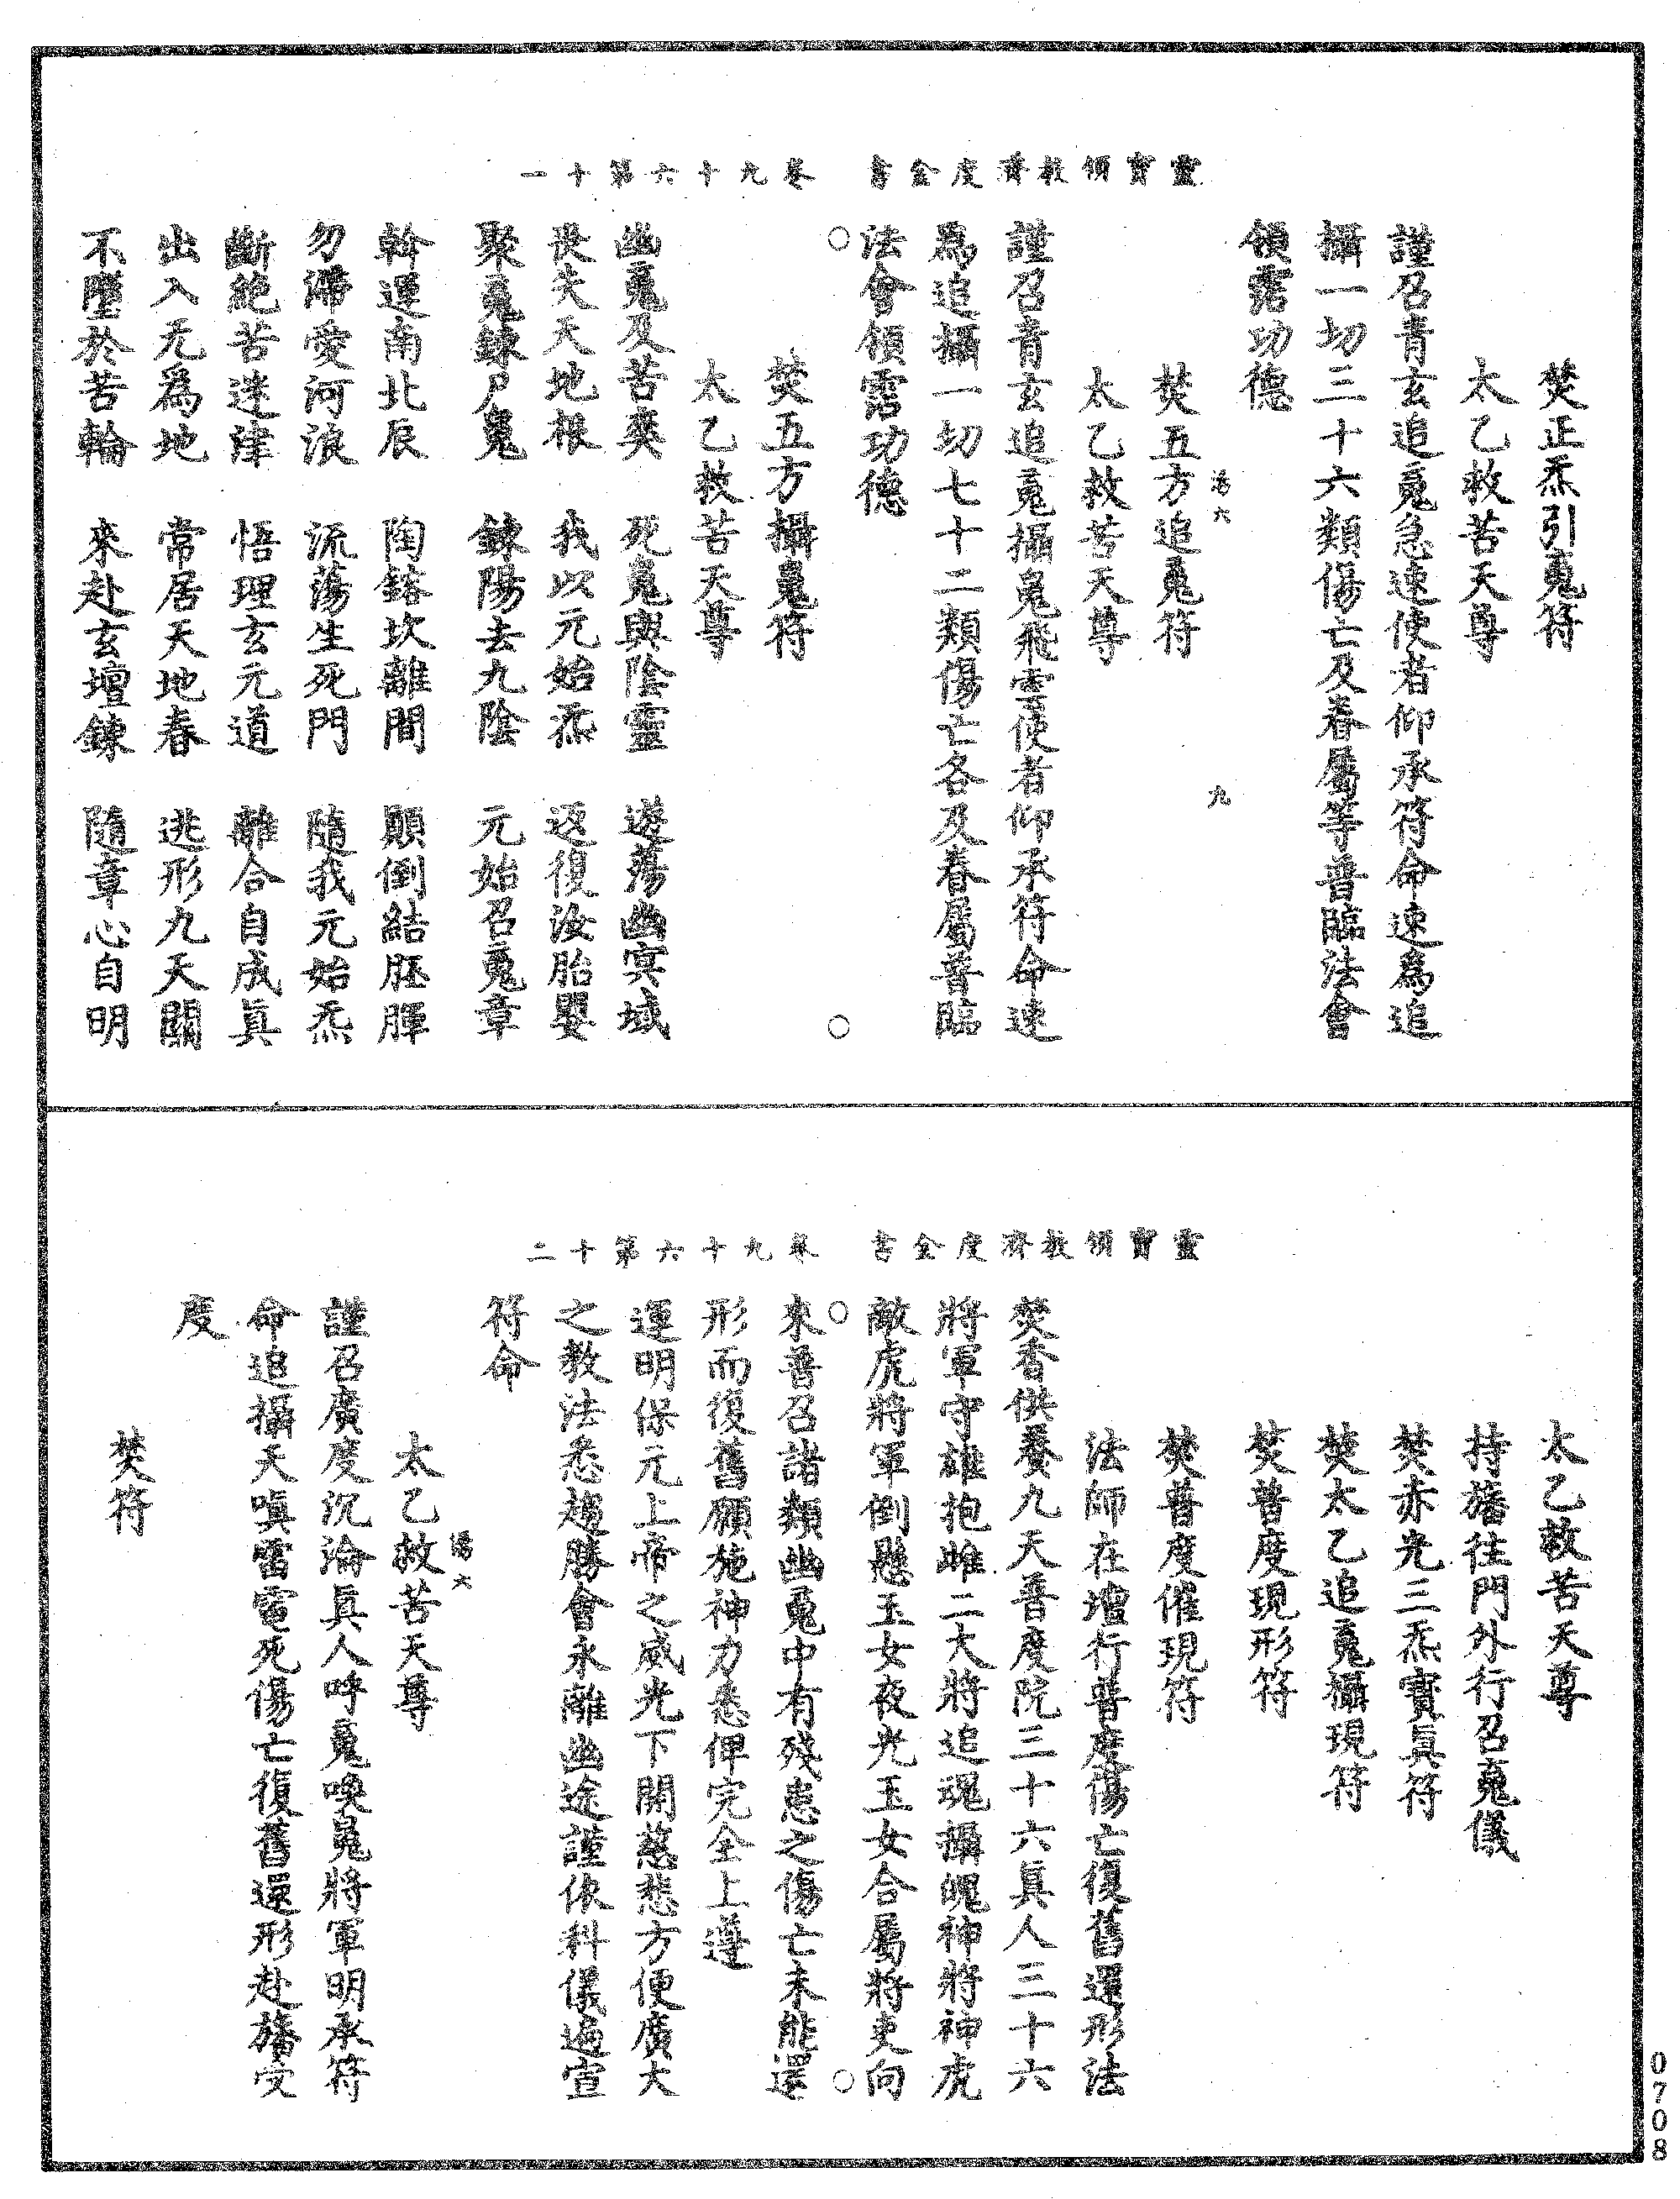 靈寶領教濟度金書　卷九十六第十一
焚正炁引䰟符
太乙救苦天尊
謹召青玄追䰟急速使者仰承符命速爲追
攝一切三十六類傷亡及眷屬等普臨法會
領霑功德
焚五方追䰟符
太乙救苦天尊
謹召青玄追䰟攝䰟飛雲使者仰承符命速
爲追攝一切七十二類傷亡各及眷屬普臨
法會領霑功德
焚五方攝䰟符
太乙救苦天尊
幽䰟及苦爽　死䰟與陰靈　遊蕩幽冥域
喪失天地根　我以元始炁　返復汝胎嬰
聚䰟鍊尸䰟　鍊陽去九陰　元始召䰟章
斡運南北辰　陶鎔坎離間　顛倒結胚腪
勿溺愛河浪　流蕩生死門　隨我元始炁
斷絶苦迷津　悟理玄元道　離合自成眞
出入无爲地　常居天地春　逃形九天關
不墮於苦輪　來赴玄壇鍊　隨章心自明
靈寶領教濟度金書　卷九十六第十二
太乙救苦天尊
持旛往門外行召䰟儀
焚赤光三炁寶眞符
焚太乙追䰟攝現符
焚普度現形符
焚普度催現符
法師在壇行普度傷亡復舊還形法
焚香供養九天普度院三十六眞人三十六
將軍守雄抱雌二大將追魂攝魄神將神虎
敵虎將軍倒懸玉女夜光玉女合屬將吏向
來普召諸類幽䰟中有殘患之傷亡未能還
形而復舊願施神力悉俾完全上遵
運明保元上帝之威光下開慈悲方便廣大
之教法悉趨勝會永離幽途謹依科儀遍宣
符命
太乙救苦天尊
謹召廣度沉淪眞人呼䰟喚䰟將軍明承符
命追攝天嗔雷電死傷亡復舊還形赴旛受
度
焚符
0708